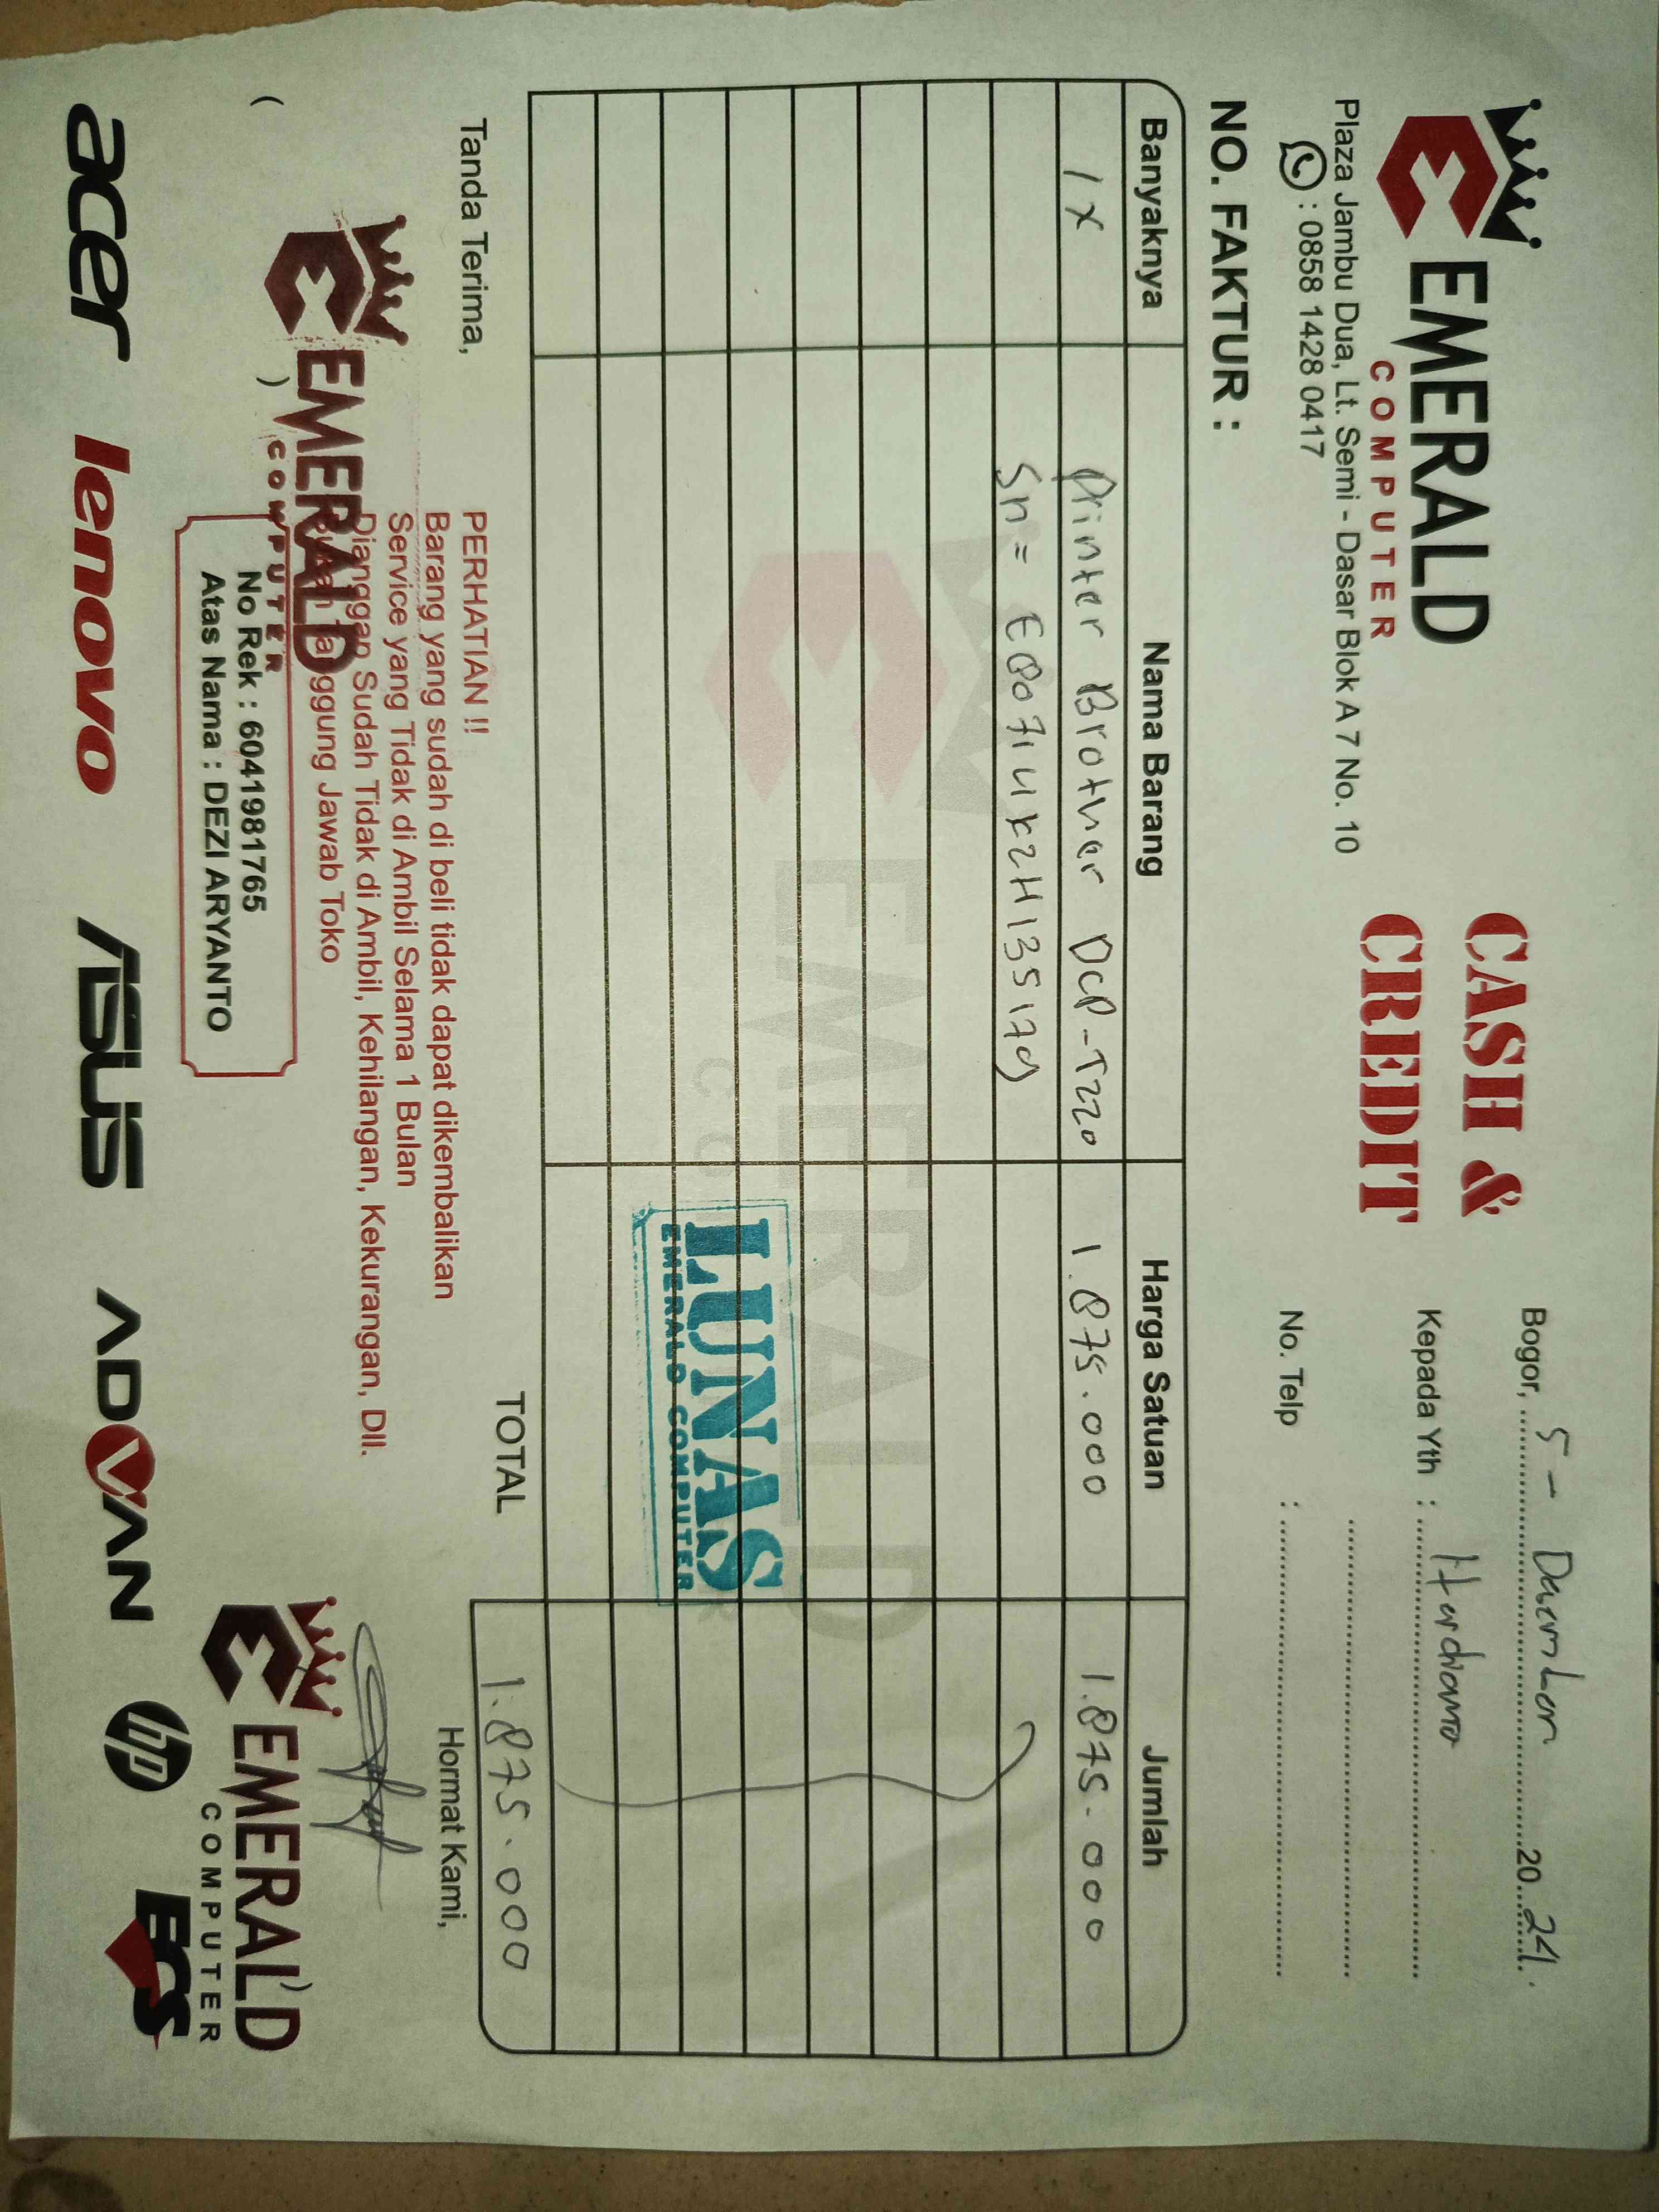 EMERALD
COMPUTER
Plaza Jambu Dua, Lt. Semi - Dasar Blok A 7 No. 10
: 0858 1428 0417
CASH &
CREDIT
Bogor, 5 - Desember 2024.
Kepada Yth : Herdiana
No. Telp :
NO. FAKTUR :
Banyaknya Nama Barang Harga Satuan Jumlah
1x Printer Brother DCP-T220 1.875.000 1.875.000
Sn = E80
LUNAS
EMERALD COMPUTER
TOTAL 1.875.000
Tanda Terima,
Hormat Kami,
PERHATIAN !!
Barang yang sudah di beli tidak dapat dikembalikan
Service yang Tidak di Ambil Selama 1 Bulan
Dianggap Sudah Tidak di Ambil, Kehilangan, Kekurangan, Dll.
Tanggung Jawab Toko
EMERALD
COMPUTER
( )
No Rek : 6041981765
Atas Nama : DEZI ARYANTO
EMERALD
COMPUTER
acer lenovo ASUS ADVAN hp ECS